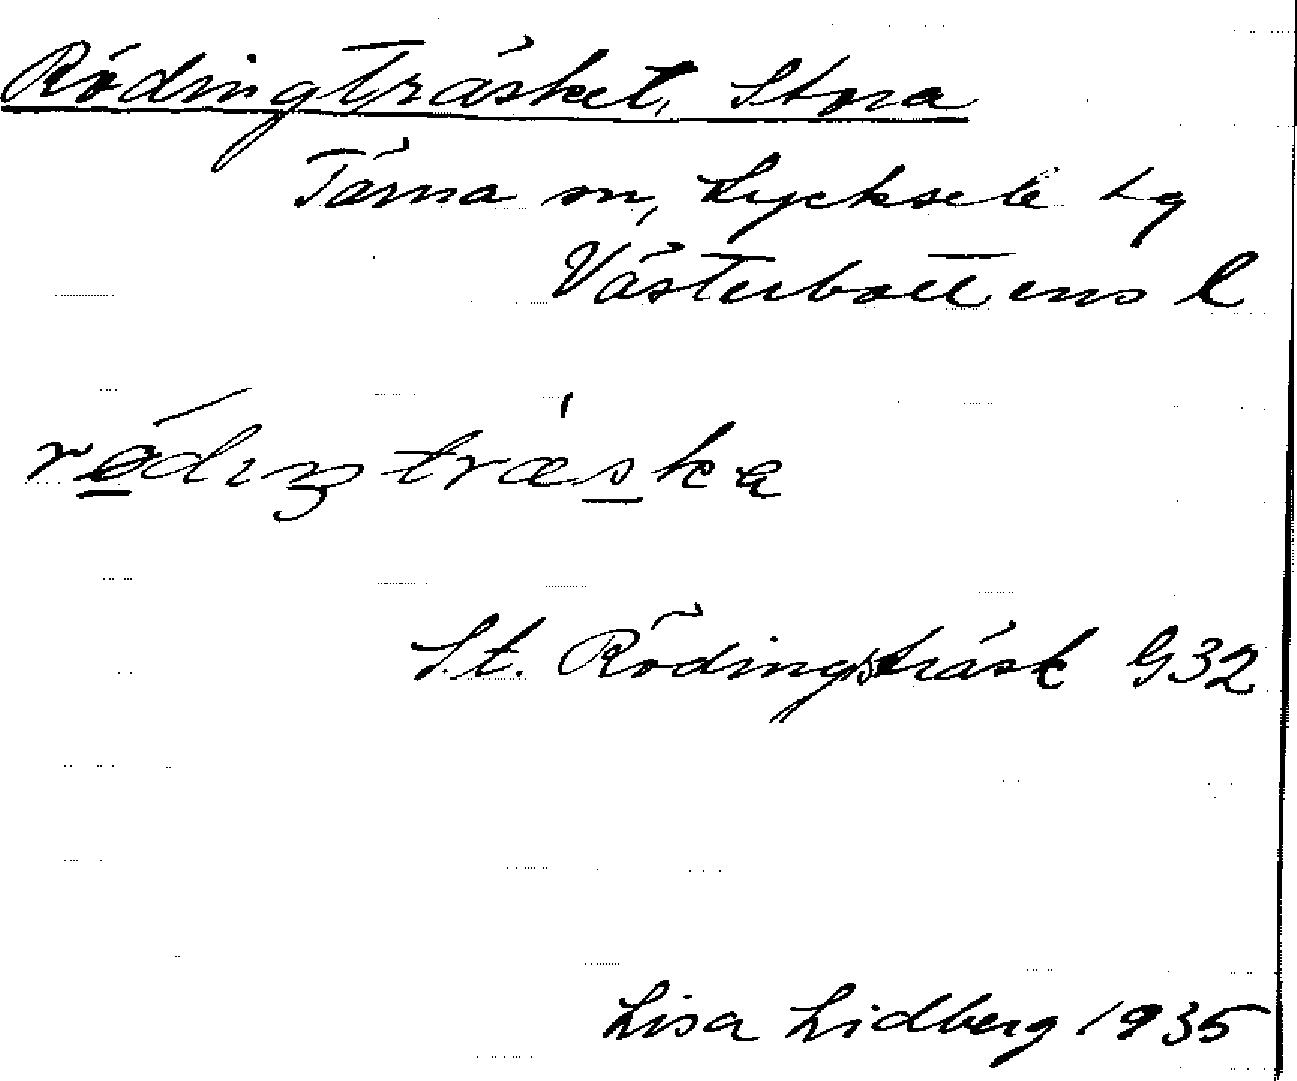 Rödingträsket, Stora
Tärna sn, Lycksele lg
Västerbottens l
rödıŋtræska
St. Rödingsträsk G32
Lisa Lidberg 1935